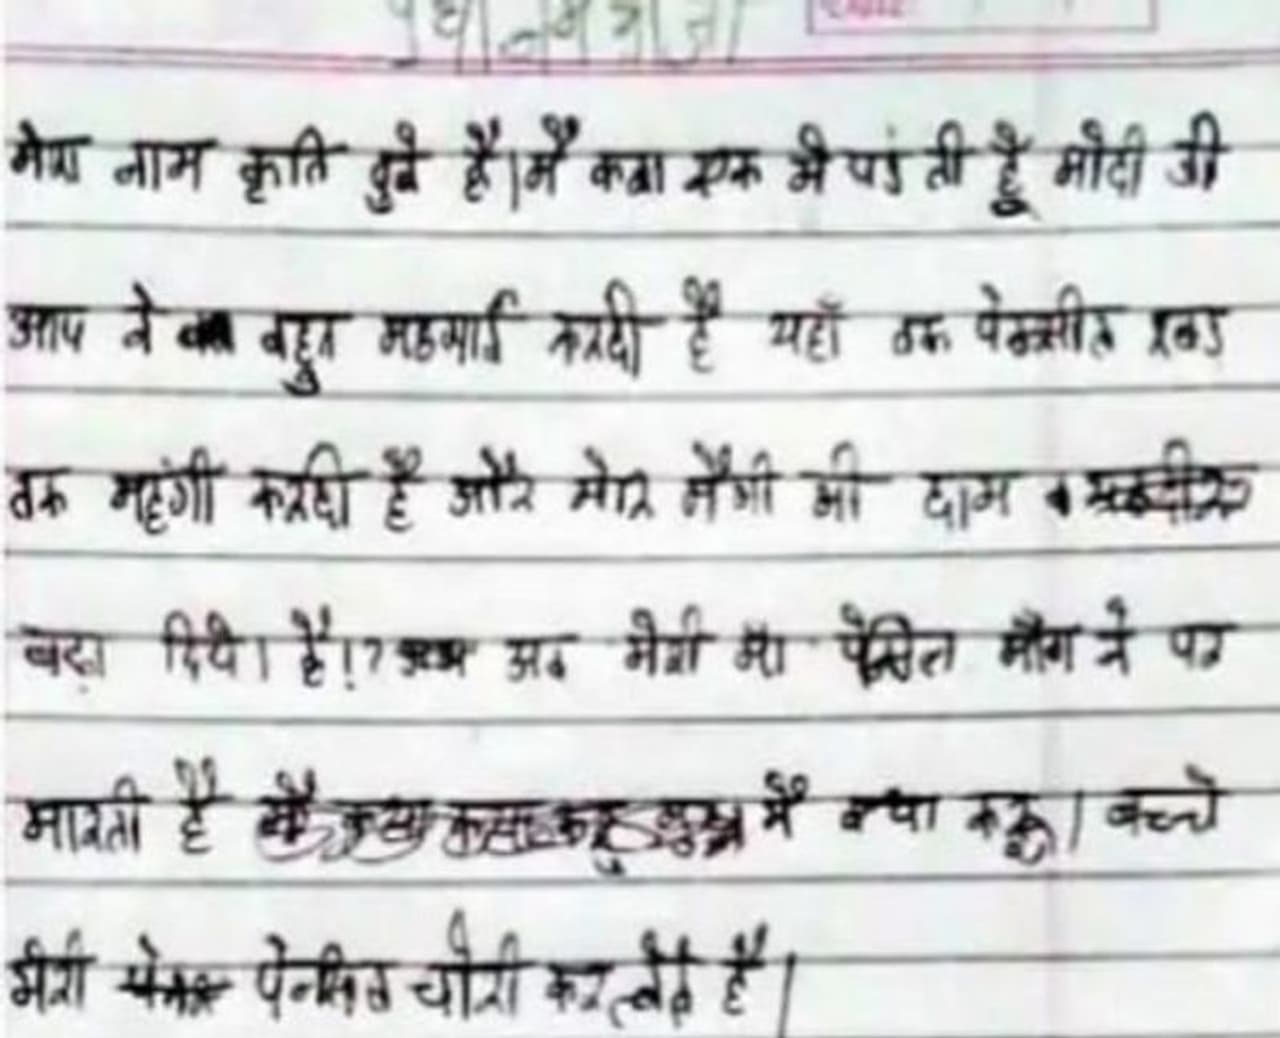 प्रधानमंत्री जी
मेरा नाम कृति दुबे है। मैं कक्षा एक मे पडंती हूँ मोदी जी
आप ने बहुत महगाई करदी है यहाँ तक पेनसील रबड
तक महंगी करदी है और मेरि मैगी भी दाम
बढ़ा दिये। है!? अब मेरी माँ पेंसिल माँग ने पर
मारती है मै क्या करू। बच्चे
मेरी पेनसिल चोरी करलेते है।